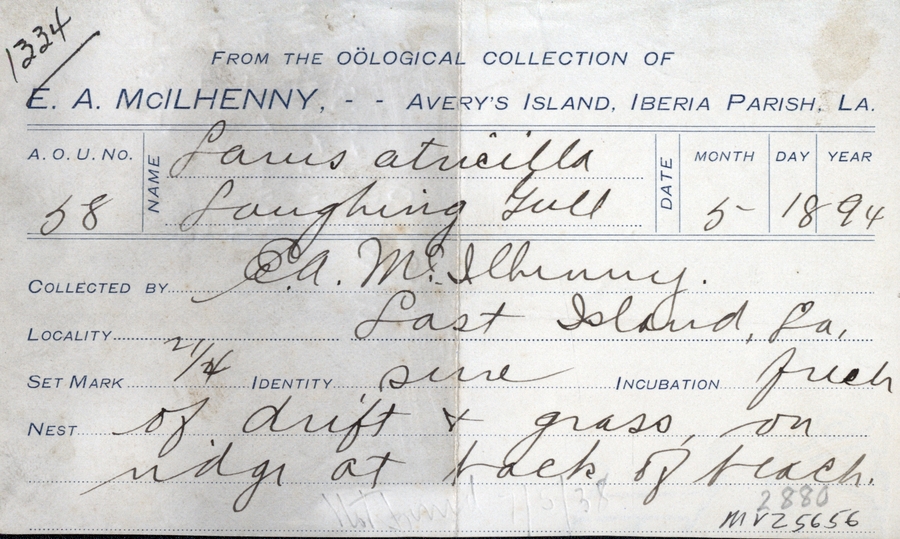 1334
FROM THE OÖLOGICAL COLLECTION OF
E. A. MCILHENNY, - - AVERY'S ISLAND, IBERIA PARISH, LA.
A. O. U. NO. NAME Larus atricilla DATE MONTH DAY YEAR
58 Laughing Gull 5- 18 94
COLLECTED BY E.A. McIlhenny.
LOCALITY Last Island, La,
SET MARK 21/4 IDENTITY sure INCUBATION fresh
NEST of drift & grass, on
ridge at back of beach.
2880
MVZ5656